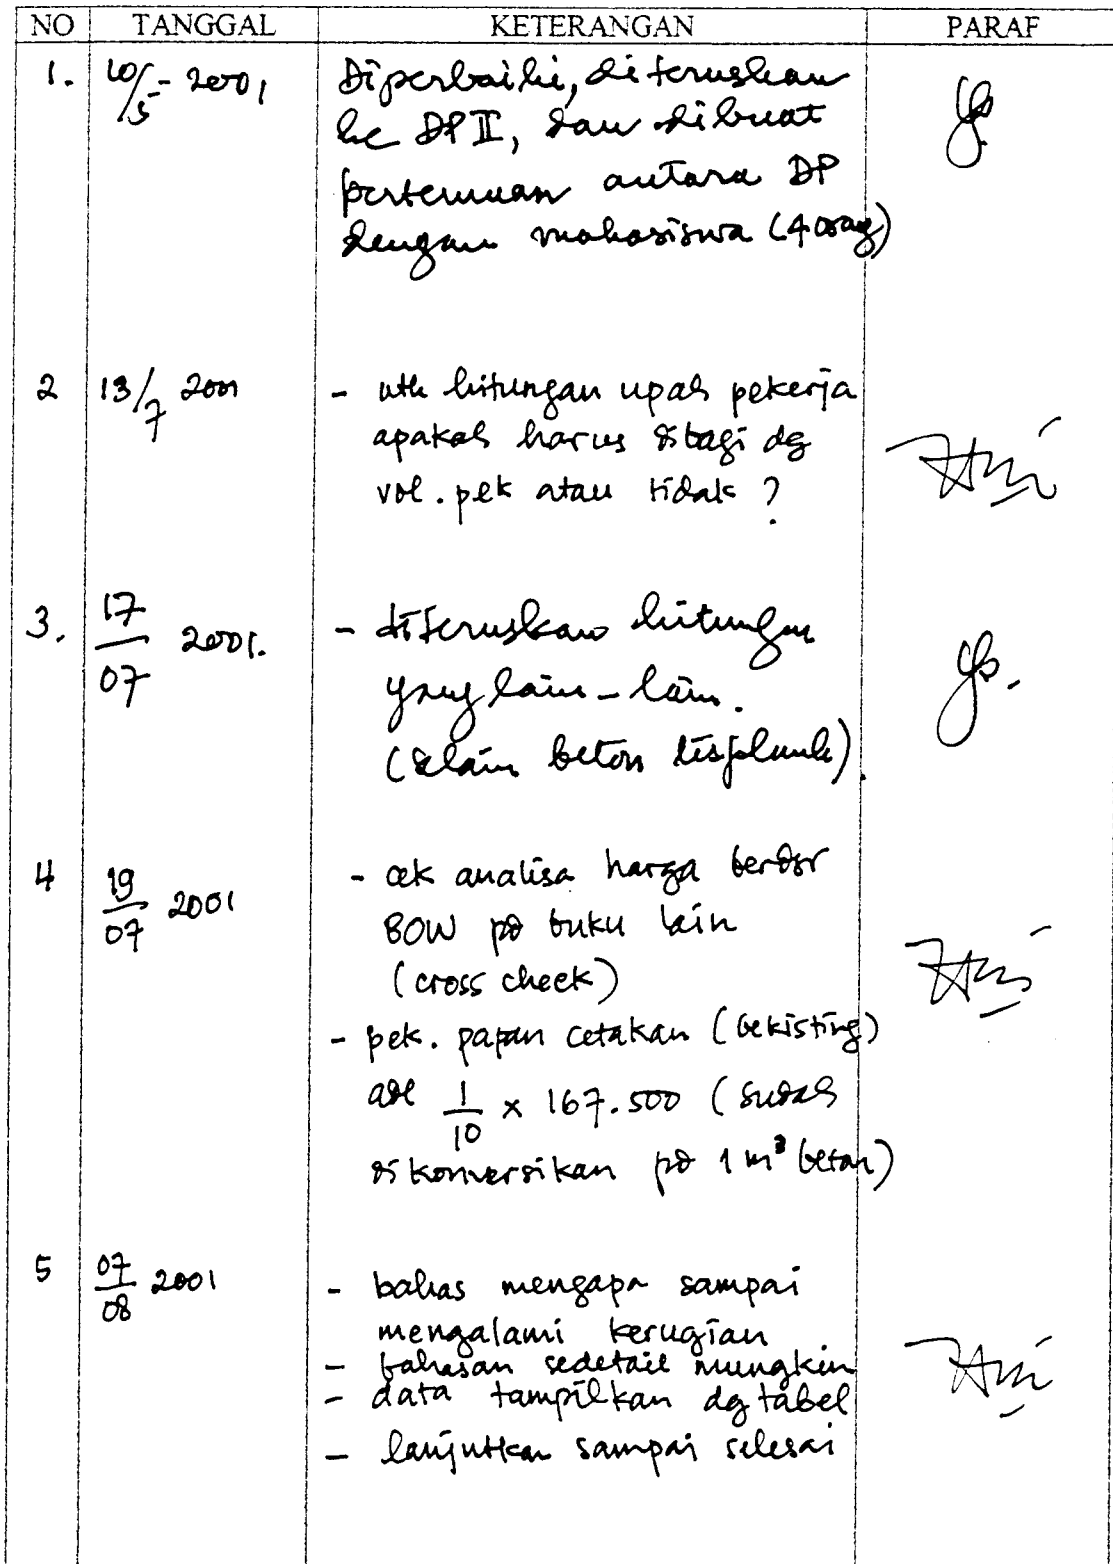 NO TANGGAL KETERANGAN PARAF
1. 10/5 - 2001 Diperbaiki, diteruskan
ke DP II, dan dibuat
pertemuan antara DP
dengan mahasiswa (4 orang)
2 13/7 2001 - utk hitungan upah pekerja
apakah harus dibagi dg
vol. pek atau tidak ?
3. 17/07 2001. - diteruskan hitungan
yang lain - lain.
(selain beton lisplank).
4 19/07 2001 - cek analisa harga berdsr
BOW pd buku lain
(cross check)
- pek. papan cetakan (bekisting)
adl 1/10 x 167.500 (sudah
dikonversikan pd 1 m³ beton)
5 07/08 2001 - bahas mengapa sampai
mengalami kerugian
- bahasan sedetail mungkin
- data tampilkan dg tabel
- lanjutkan sampai selesai